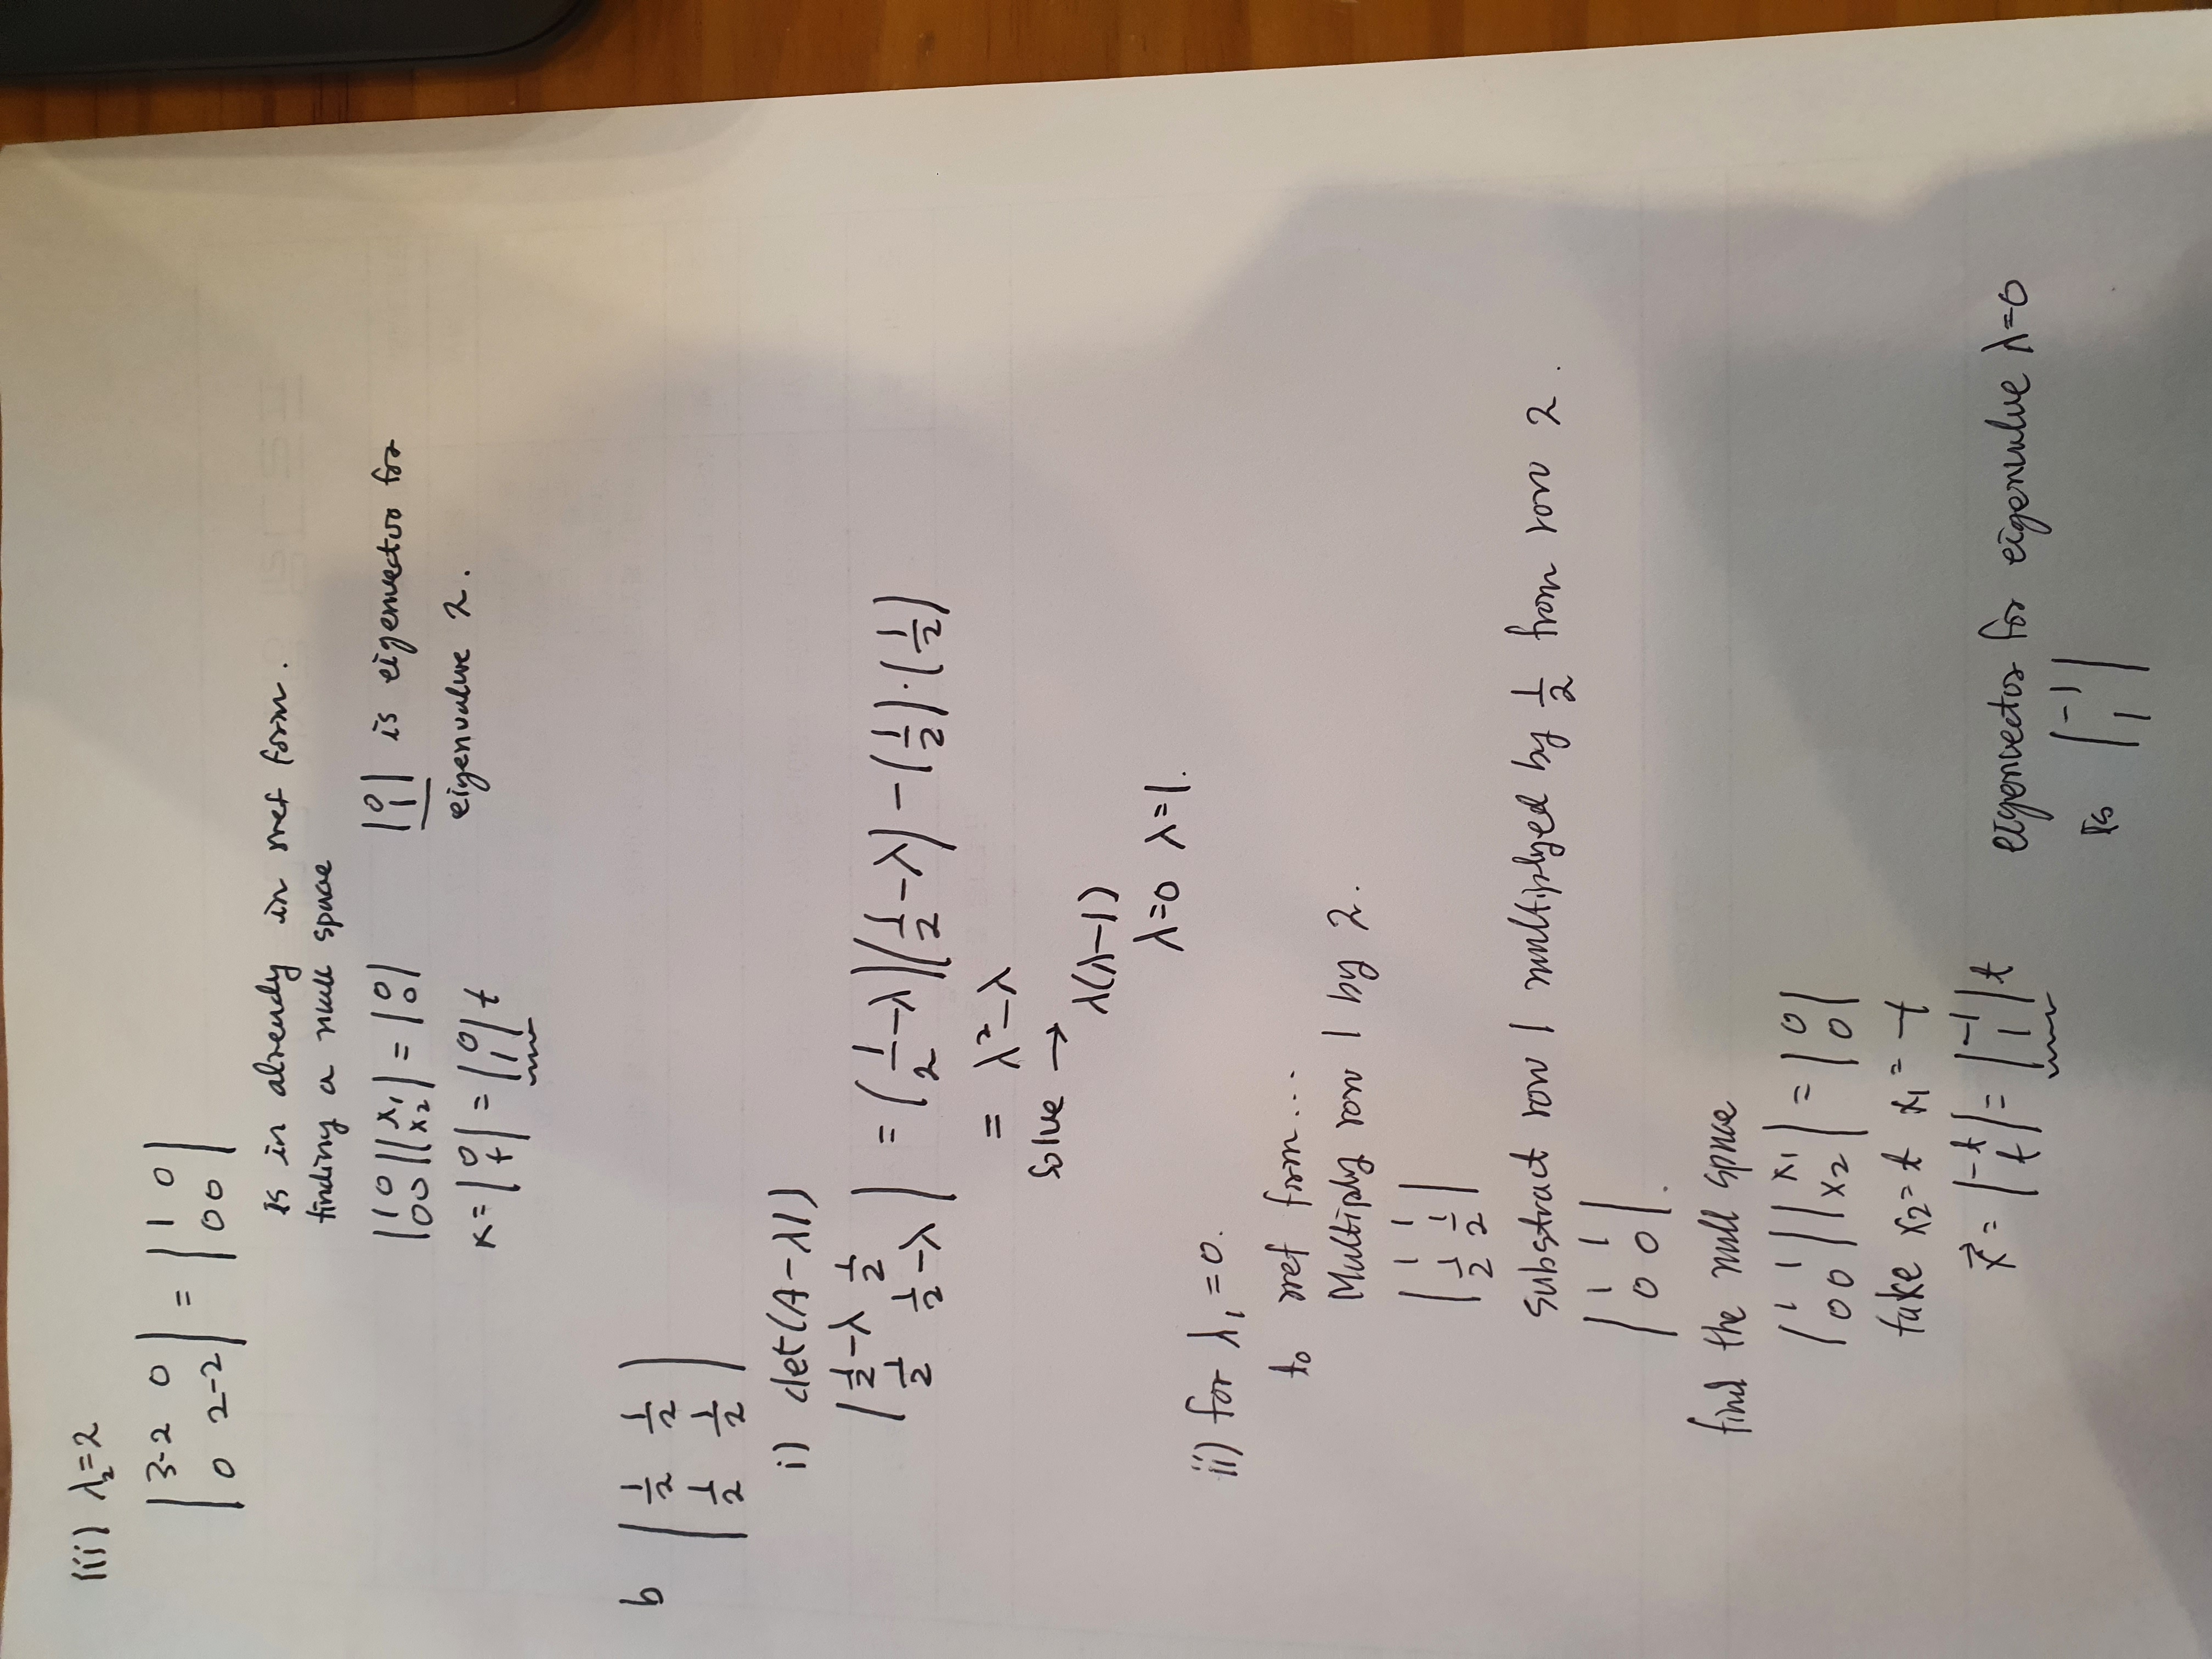 iii) λ₂=2
|3-2 0| = |1 0|
|0 2-2| |0 0|
is in already in rref form.
finding a null space
|1 0||x₁| = |0|
|0 0||x₂| |0|
x = |0| = |0| t
|t| |1|
|0| is eigenvector for
|1|
eigenvalue 2.
b |1/2 1/2|
|1/2 1/2|
i) det(A-λI)
|1/2-λ 1/2| = (1/2-λ)(1/2-λ)-(1/2)·(1/2)
|1/2 1/2-λ|
= λ²-λ
solve →
λ(λ-1)
λ=0 λ=1.
ii) for λ₁=0.
to rref form...
Multiply row 1 by 2.
|1 1|
|1/2 1/2|
substract row 1 multiplyed by 1/2 from row 2.
|1 1|
|0 0|.
find the null space
|1 1||x₁| = |0|
|0 0||x₂| |0|
take x₂=t x₁=-t
x⃗ = |-t| = |-1| t
|t| |1|
eigenvector for eigenvalue λ=0
is |-1|
|1|